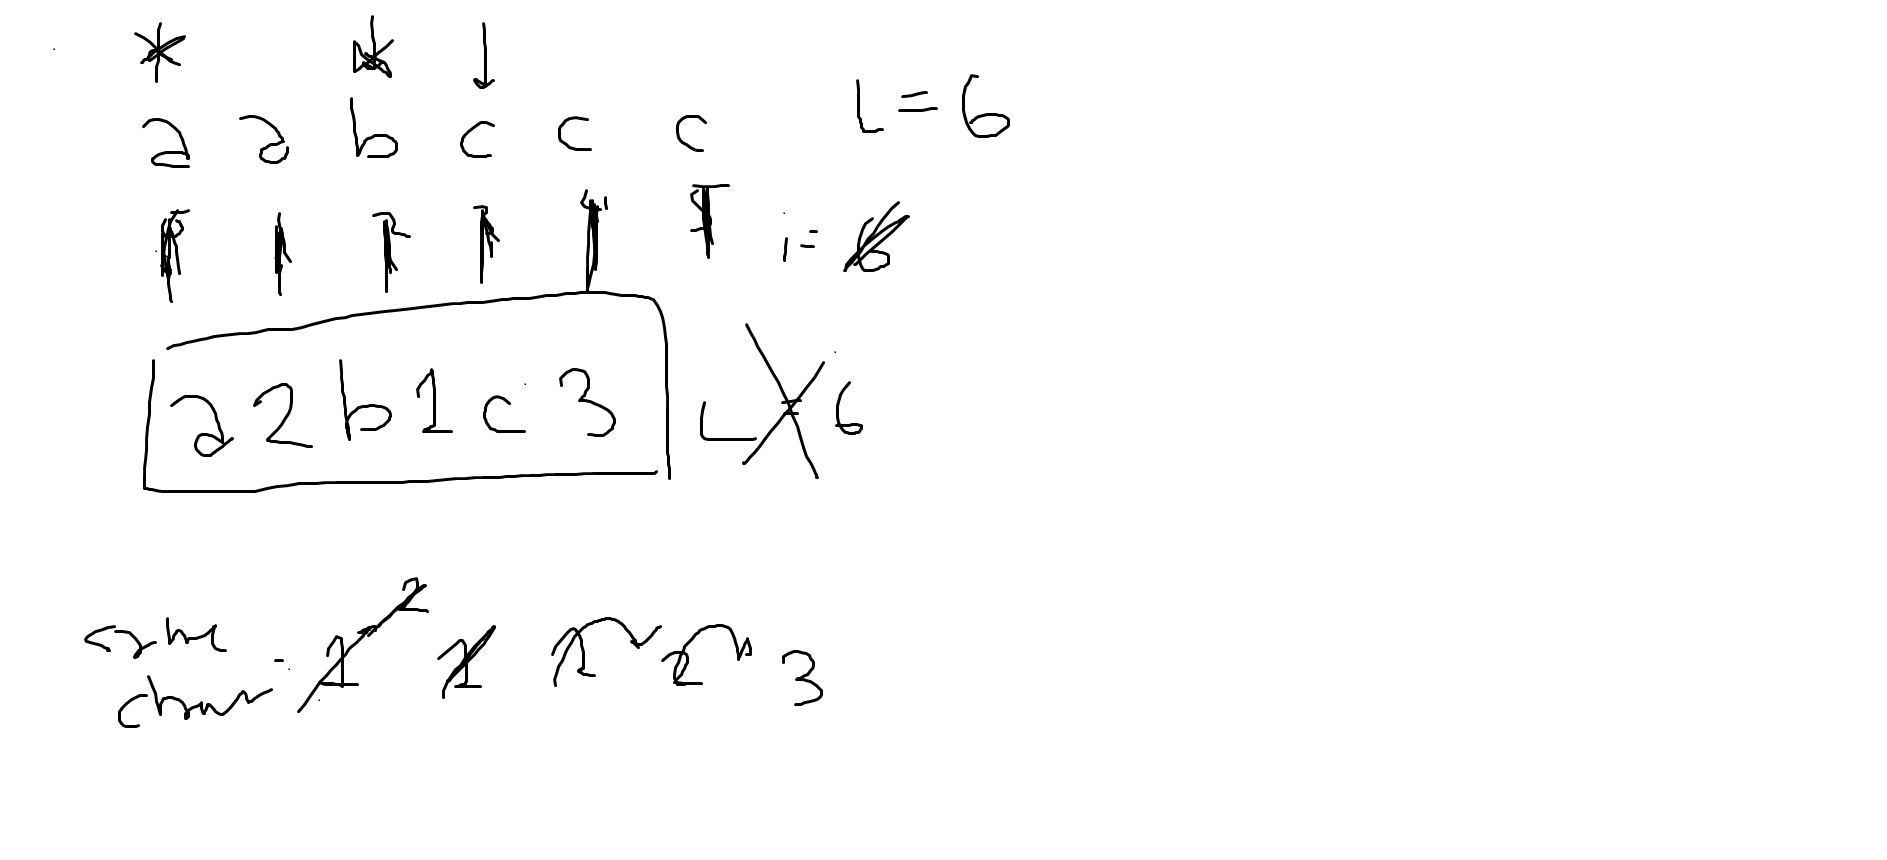 a a b c c c L = 6
i = 6
a 2 b 1 c 3 L = 6
same 2
char = 1 1 1 2 3